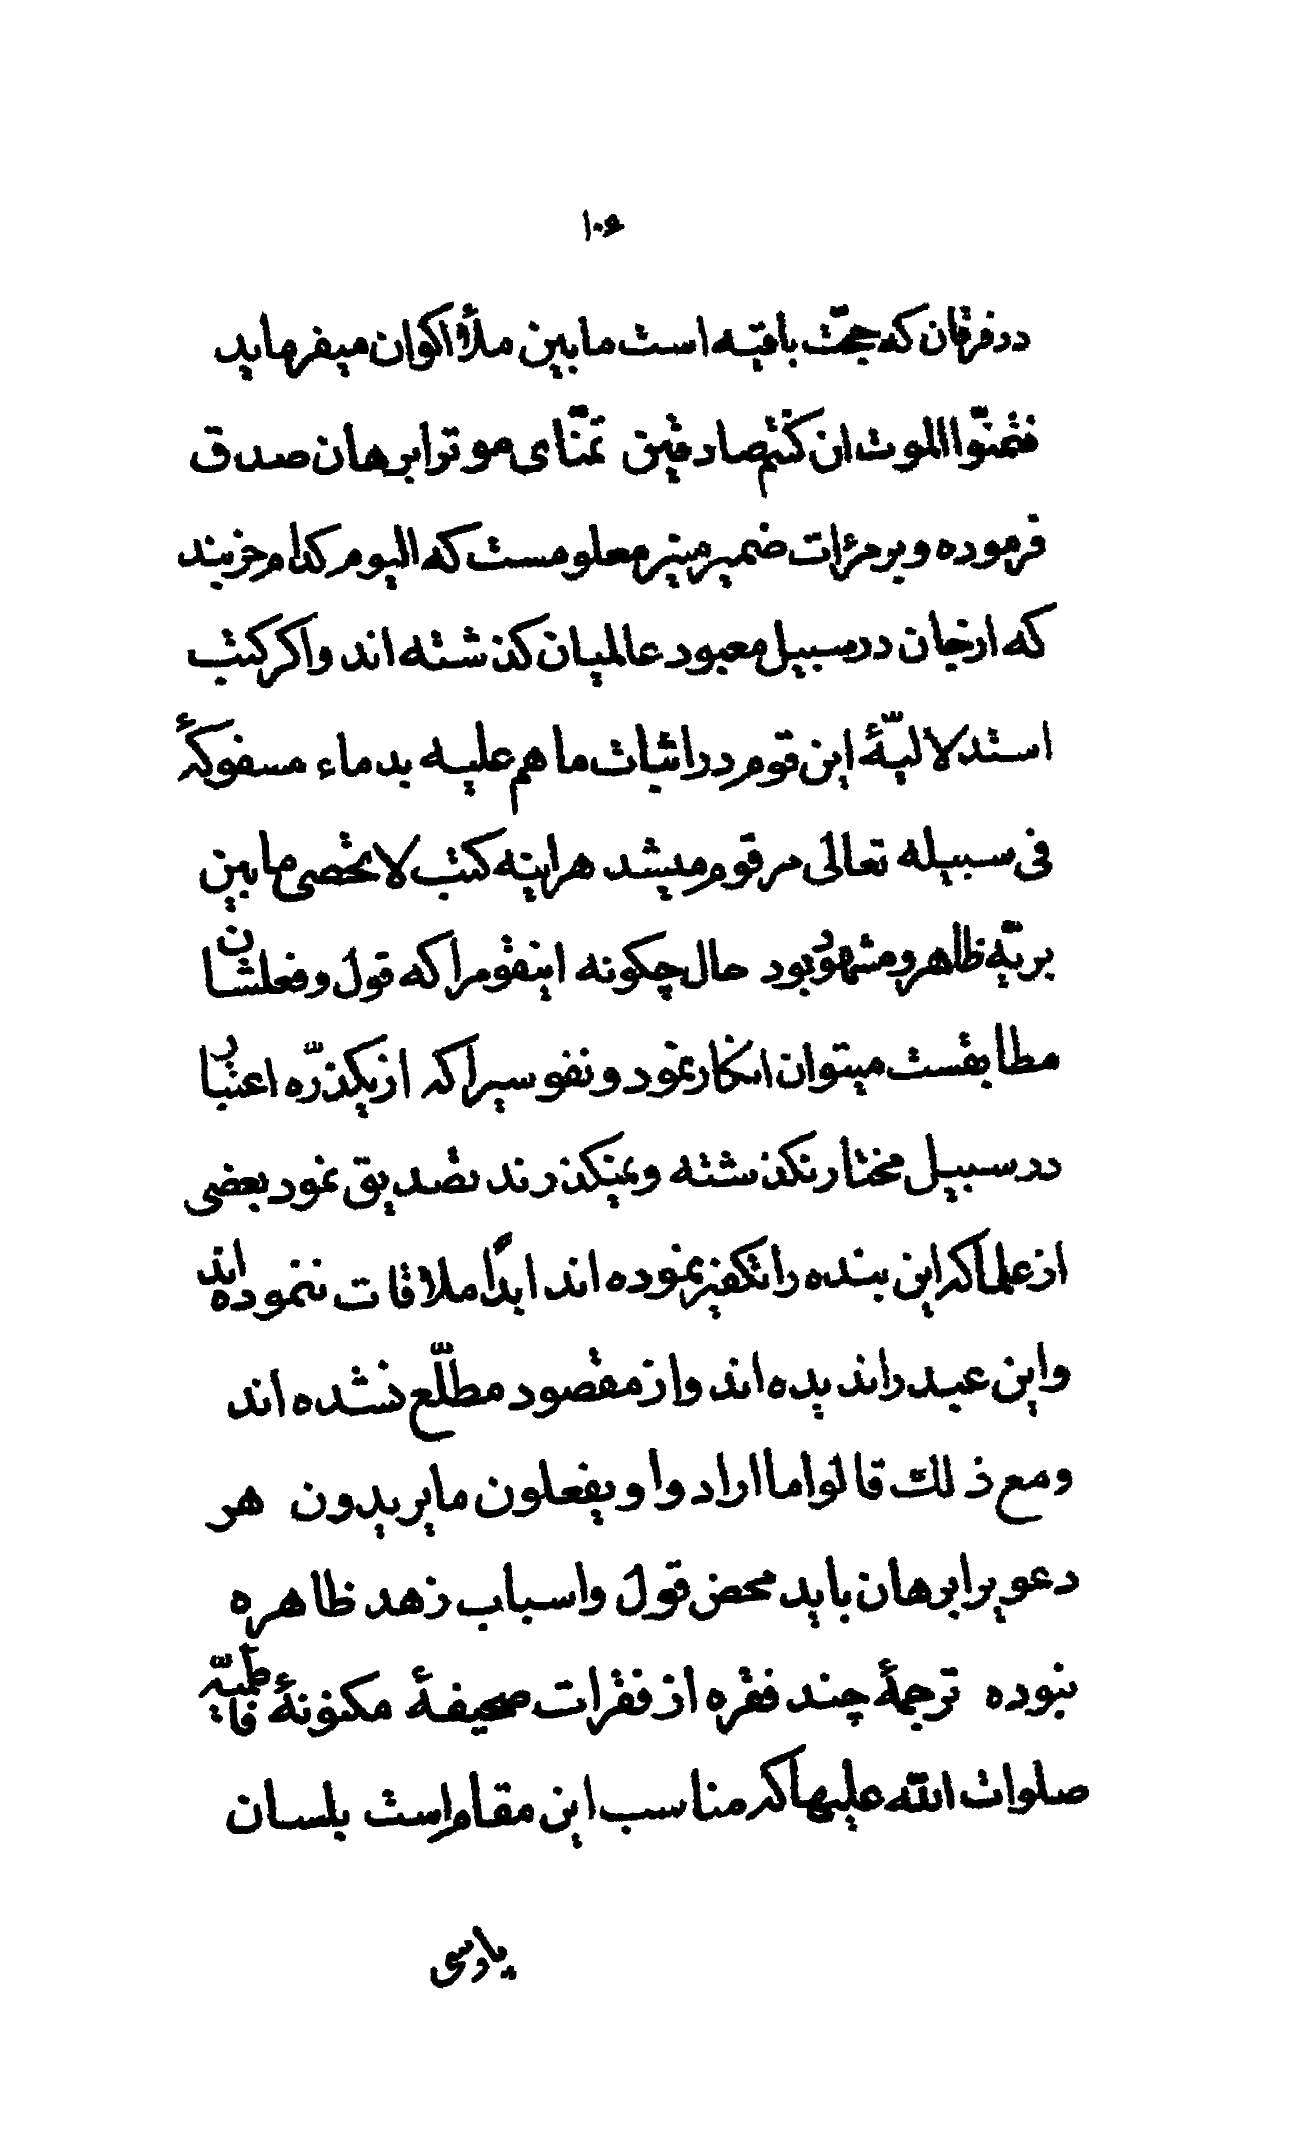 ۱۰۶
در فرقان که حجّت باقیه است ما بین ملأ اکوان میفرماید
فتمنّوا الموت ان کنتم صادقین تمنّای موت را برهان صدق
فرموده و بر مرٔات ضمیر منیر معلومست که الیوم کدام حزبند
که از جان در سبیل معبود عالمیان گذشته اند و اگر کتب
استدلالیّهٔ این قوم در اثبات ما هم علیه بدماء مسفوکهٔ
فی سبیله تعالی مرقوم میشد هر اینه کتب لا تحصی ما بین
بریّه ظاهر و مشهود بود حال چگونه اینقوم را که قول و فعلشان
مطابقست میتوان انکار نمود و نفوسیرا که از یکذرّه اعتبار
در سبیل مختار نگذشته و نمیگذرند تصدیق نمود بعضی
از علما که این بنده را تکفیر نموده اند ابداً ملاقات ننموده اند
و این عبد را ندیده اند و از مقصود مطلّع نشده اند
و مع ذلک قالوا ما ارادوا و یفعلون ما یریدون هر
دعویرا برهان باید محض قول و اسباب زهد ظاهره
نبوده ترجمهٔ چند فقره از فقرات صحیفهٔ مکنونهٔ فاطمیّه
صلوات الله علیها که مناسب این مقام است بلسان
پارسی